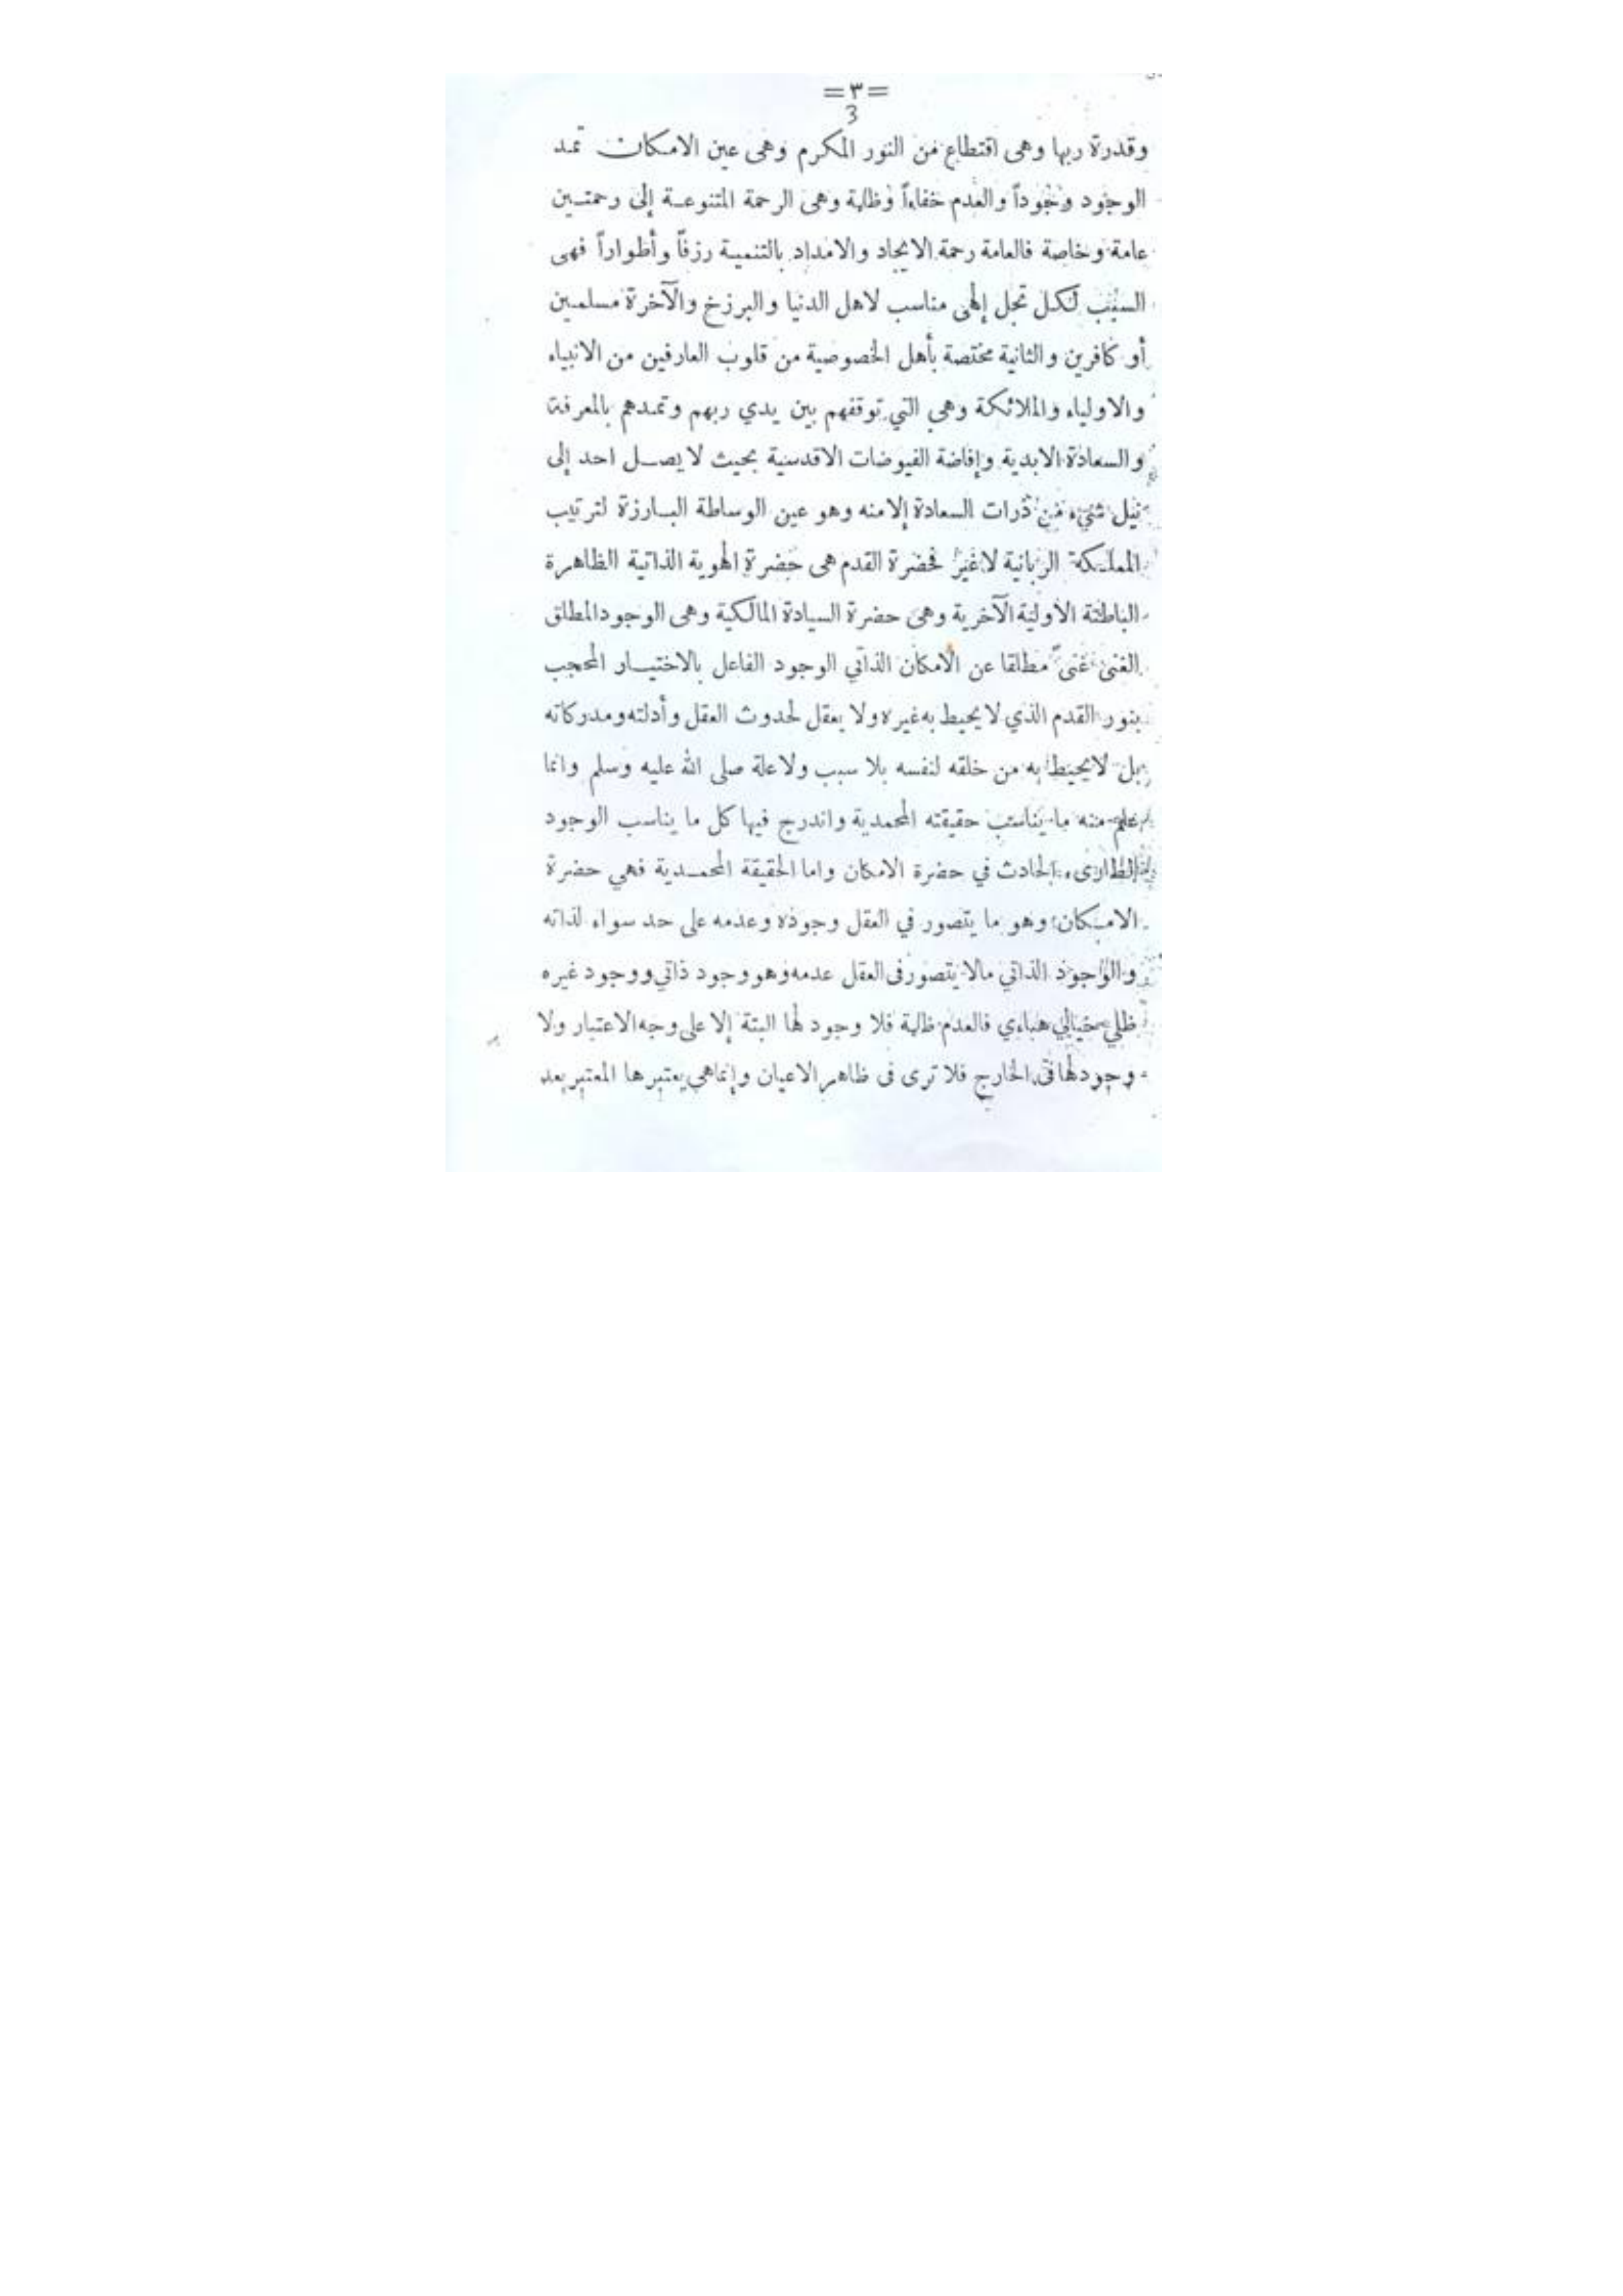 =٣=
3
وقدرة ربها وهى اقتطاع من النور المكرم وهى عين الامكان تمد
الوجود وجوداً والعدم خفاءاً وظلمة وهى الرحمة المتنوعة إلى رحمتين
عامة وخاصة فالعامة رحمة الايجاد والامداد بالتنمية رزقاً وأطواراً فهى
السبب لكل تجل إلهى مناسب لاهل الدنيا والبرزخ والآخرة مسلمين
أو كافرين والثانية مختصة بأهل الخصوصية من قلوب العارفين من الانبياء
والاولياء والملائكة وهي التي توقفهم بين يدي ربهم وتمدهم بالمعرفة
والسعادة الابدية وإفاضة الفيوضات الاقدسية بحيث لا يصل احد إلى
نيل شيء من ذرات السعادة إلا منه وهو عين الوساطة البارزة لترتيب
المملكة الربانية لا غير فحضرة القدم هى حضرة الهوية الذاتية الظاهرة
الباطنة الأولية الآخرية وهى حضرة السيادة المالكية وهى الوجود المطلق
الغنى غنىً مطلقا عن الامكان الذاتي الوجود الفاعل بالاختيار المحجب
بنور القدم الذي لا يحيط به غيره ولا يعقل لحدوث العقل وأدلته ومدركاته
بل لا يحيط به من خلقه لنفسه بلا سبب ولا علة صلى الله عليه وسلم وانما
علم منه ما يناسب حقيقته المحمدية واندرج فيها كل ما يناسب الوجود
الطارىء الحادث في حضرة الامكان واما الحقيقة المحمدية فهي حضرة
الامكان وهو ما يتصور في العقل وجوده وعدمه على حد سواء لذاته
والواجود الذاتي مالا يتصور فى العقل عدمه وهو وجود ذاتي ووجود غيره
ظلي خيالي هباءي فالعدم ظلمة فلا وجود لها البتة إلا على وجه الاعتبار ولا
وجود لها فى الخارج فلا ترى فى ظاهر الاعيان وإنما هي يعتبرها المعتبر بعد